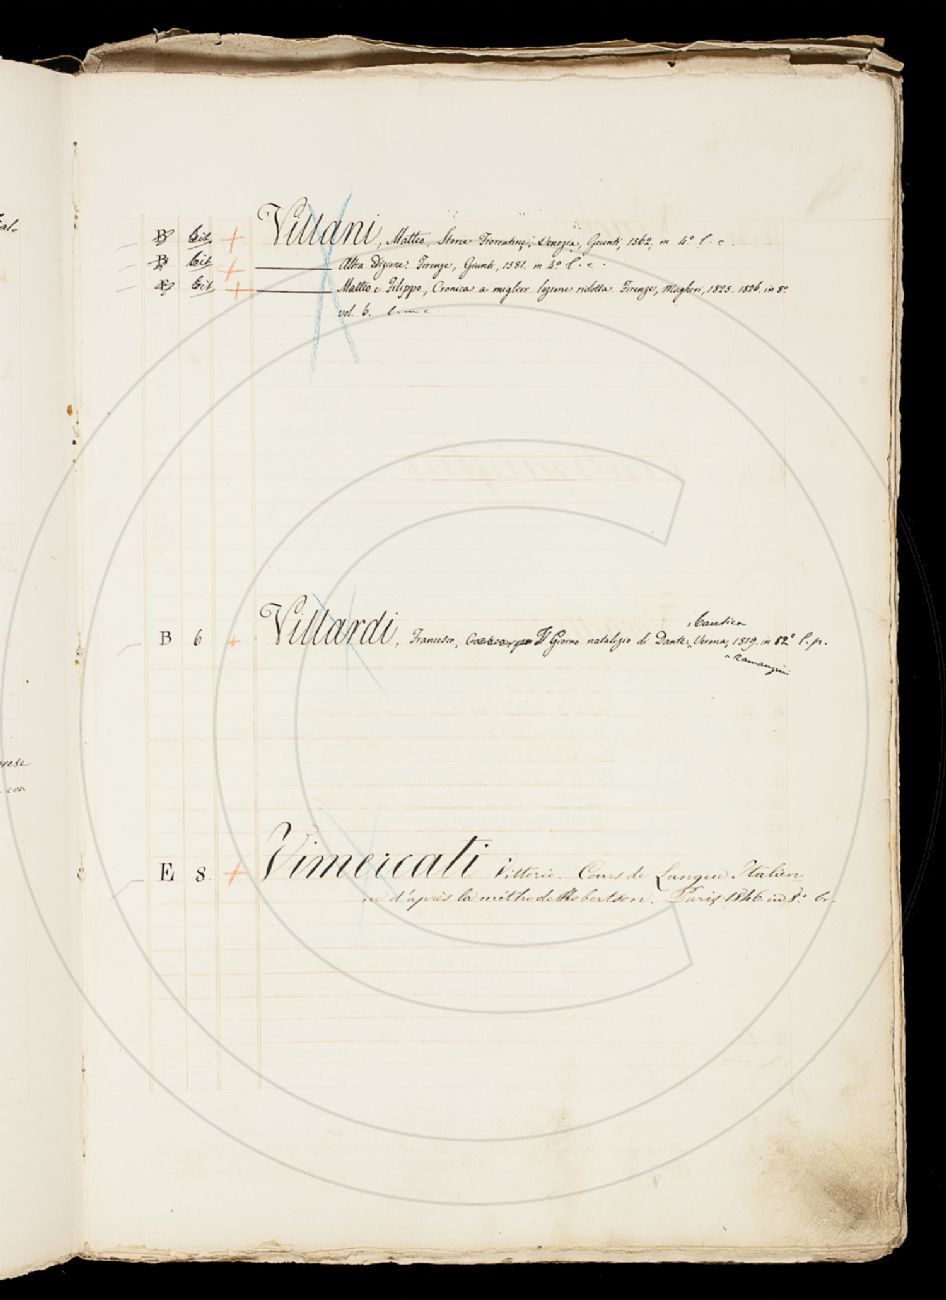 B Cit + Villani, Matteo, Storia Fiorentina; Venezia, Giunti, 1562, in 4º l. c.
B Cit + Altra edizione; Firenze, Giunti, 1581. in 4º l. c.
Cit + Matteo e Filippo, Cronica a miglior lezione ridotta Firenze, Magheri, 1825. 1826. in 8º
vol. 6.
Cantica
B 6 + Villardi, Francesco, Il Giorno natalizio di Dante, Verona, 1819. in 82º l. p.
Ramanzini
E 8. + Vimercati Vittorio. Cours de Langue Italien
ne d'après la méthode Robertson. Paris 1846 in 8º br.